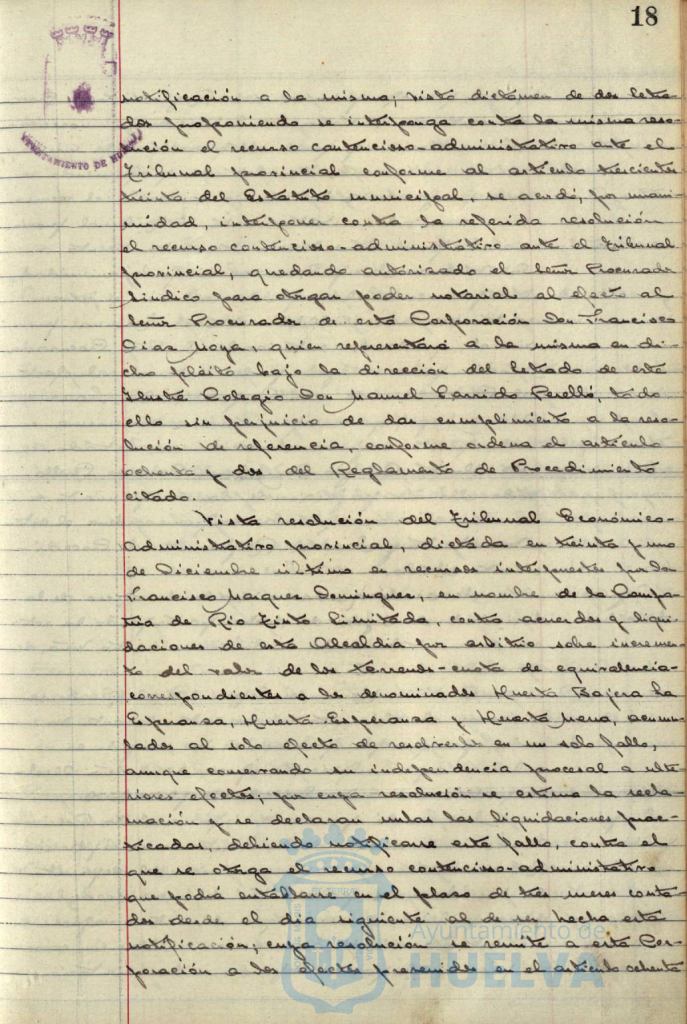 18
AYUNTAMIENTO DE HUELVA
notificación a la misma; visto dictámen de dos letra-
dos proponiendo se interponga contra la misma reso-
lución el recurso contencioso-administrativo ante el
Tribunal provincial conforme al artículo trescientos
treinta del Estatuto municipal, se acordó, por unani-
midad, interponer contra la referida resolución
el recurso contencioso-administrativo ante el Tribunal
provincial, quedando autorizado el Señor Procurador
Síndico para otorgar poder notarial al efecto al
Señor Procurador de esta Corporación Don Francisco
Díaz Moya, quien representará a la misma en di-
cho pleito bajo la dirección del Letrado de este
Ilustre Colegio Don Manuel Garrido Perelló, todo
ello sin perjuicio de dar cumplimiento a la reso-
lución de referencia, conforme ordena el artículo
ochenta y dos del Reglamento de Procedimiento
citado.
Vista resolución del Tribunal Económico-
administrativo provincial, dictada en treinta y uno
de Diciembre último en recursos interpuestos por don
Francisco Marquez Dominguez, en nombre de la Compa-
ñia de Rio Tinto Limitada, contra acuerdos y liqui-
daciones de esta Alcaldia por arbitrio sobre incremen-
to del valor de los terrenos-cuota de equivalencia-
correspondientes a los denominados Huerta Bajera La
Esperanza, Huerta Esperanza y Huerta Mena, acumu-
lados al solo efecto de resolverlos en un solo fallo,
aunque conservando su independencia procesal a ulte-
riores efectos; por cuya resolución se estima la recla-
mación y se declaran nulas las liquidaciones prac-
ticadas, debiendo notificarse este fallo, contra el
que se otorga el recurso contencioso-administrativo
que podrá entablarse en el plazo de tres meses conta-
dos desde el día siguiente al de ser hecha esta
notificación; cuya resolución se remite a esta Cor-
poración a los efectos prevenidos en el artículo ochenta
Ayuntamiento de
HUELVA